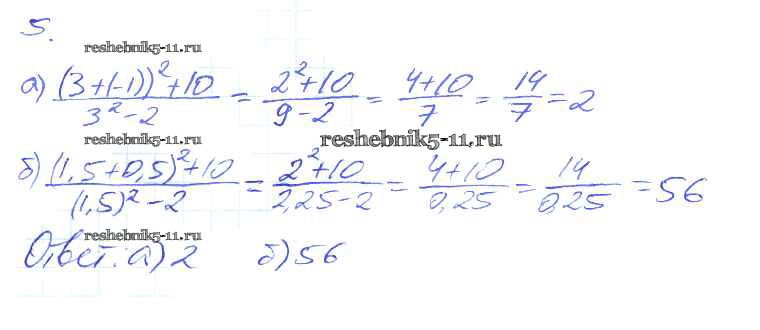 5.
reshebnik5-11.ru
а) (3+(-1))²+10 / 3²-2 = 2²+10 / 9-2 = 4+10 / 7 = 14 / 7 = 2
reshebnik5-11.ru
reshebnik5-11.ru
б) (1,5+0,5)²+10 / (1,5)²-2 = 2²+10 / 2,25-2 = 4+10 / 0,25 = 14 / 0,25 = 56
reshebnik5-11.ru
Ответ: а) 2 б) 56